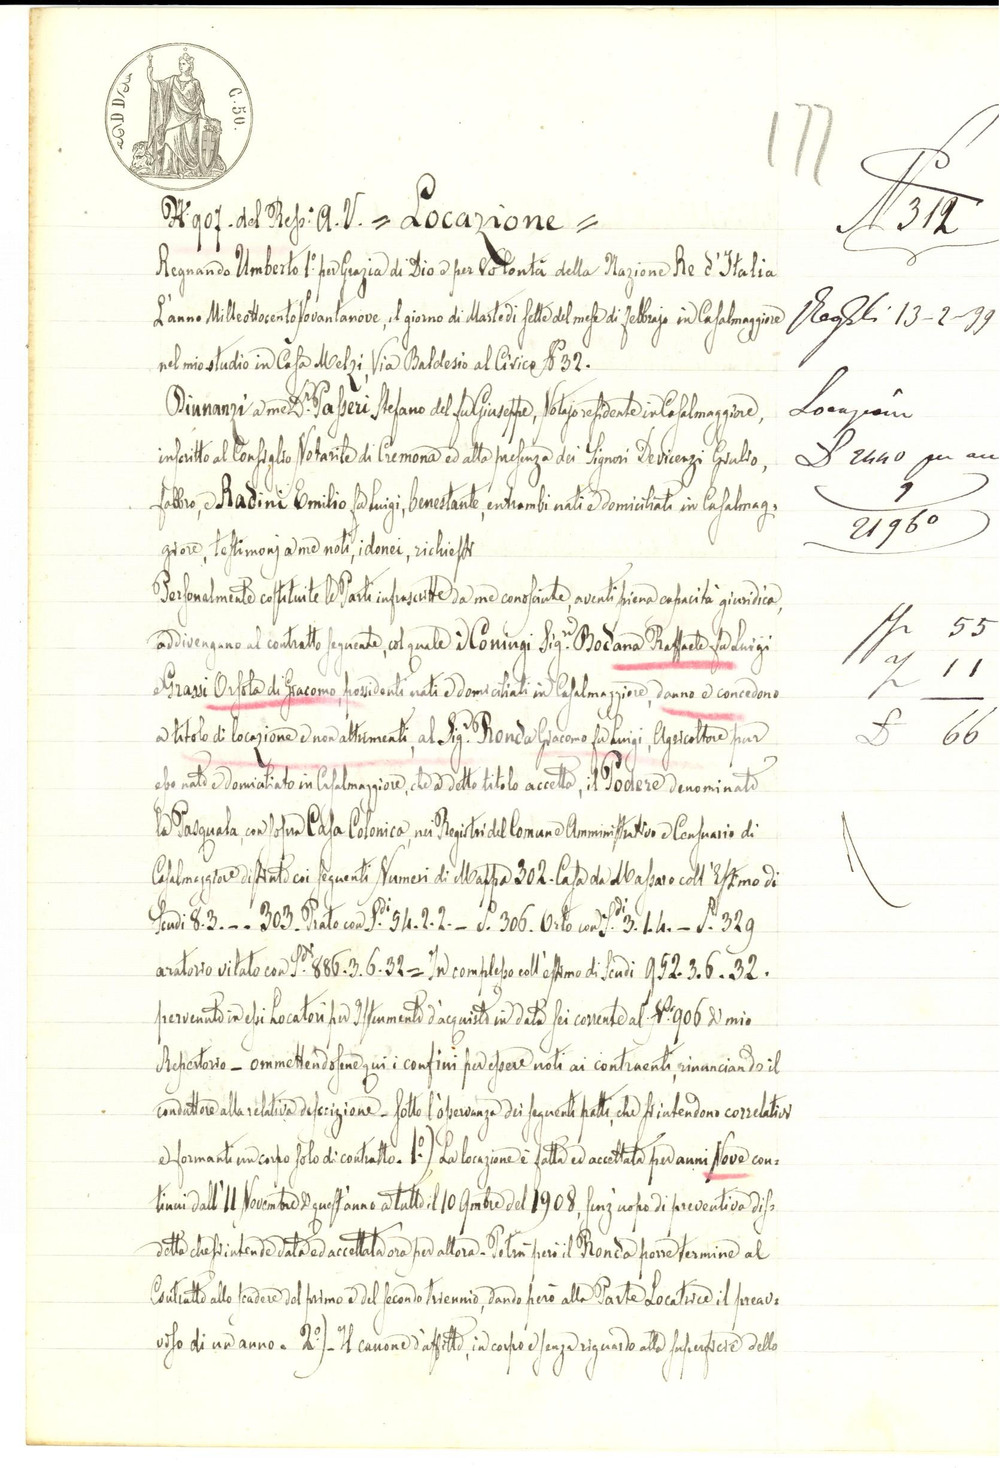 C. 50.
177
N 312
N.° 907. del Rep.° A. V. = Locazione =
Regnando Umberto I.° per Grazia di Dio e per Volontà della Nazione Re d'Italia
L'anno Milleottocentonovantanove, il giorno di Martedì sette del mese di febbrajo in Casalmaggiore
13-2-99
nel mio studio in Casa Melzi, Via Baldesio al Civico N° 32.
Dinnanzi a me Dr. Passeri Stefano del fu Giuseppe, Notajo residente in Casalmaggiore,
Locazione
inscritto al Consiglio Notarile di Cremona ed alla presenza dei Signori Devicenzi Giulio,
£ 2440 per an
9
fabbro, e Radini Emilio fu Luigi, benestante, entrambi nati e domiciliati in Casalmag-
21960
giore, testimonj a me noti, idonei, richiesti
Personalmente costituite le Parti infrascritte da me conosciute, aventi piena capacità giuridica,
55
addivengono al contratto seguente, col quale i Coniugi Sig.ri Bodana Raffaele fu Luigi
11
e Grassi Orsola di Giacomo, possidenti nati e domiciliati in Casalmaggiore, danno e concedono
£ 66
a titolo di locazione e non altrimenti, al Sig.r Ronda Giacomo fu Luigi, Agricoltore pur
esso nato e domiciliato in Casalmaggiore, che a detto titolo accetta, il Podere denominato
la Pasquala, con sopra Casa Colonica, nei Registri del Comune Amministrativo e Censuario di
Casalmaggiore distinto coi seguenti Numeri di Mappa 302. Casa da Massaro coll'Estimo di
Scudi 8.3. -- 303. Prato con S.di 54.2.2. - S. 306. Orto con S.di 3.1.4. - S. 329
aratorio vitato con S.di 886.3.6.32 = In complesso coll'estimo di Scudi 952.3.6.32.
pervenuto in essi Locatori per Istrumento d'acquisto in data sei corrente al N.° 906 di mio
Repertorio - ommettendosene qui i confini per essere noti ai contraenti, rinunciando il
conduttore alla relativa descrizione - sotto l'osservanza dei seguenti patti, che si intendono correlativi
e formanti un corpo solo di contratto. 1.°) La locazione è fatta ed accettata per anni Nove con-
tinui dall'11 Novembre di quest'anno a tutto il 10 9mbre del 1908, senz'uopo di preventiva dis-
detta che si intende data ed accettata ora per allora - Potrà però il Ronda porre termine al
Contratto allo scadere del primo e del secondo triennio, dando però alla Parte Locatrice il preav-
viso di un anno. 2.°) - Il canone d'affitto, in corpo e senza riguardo alla superficie dello